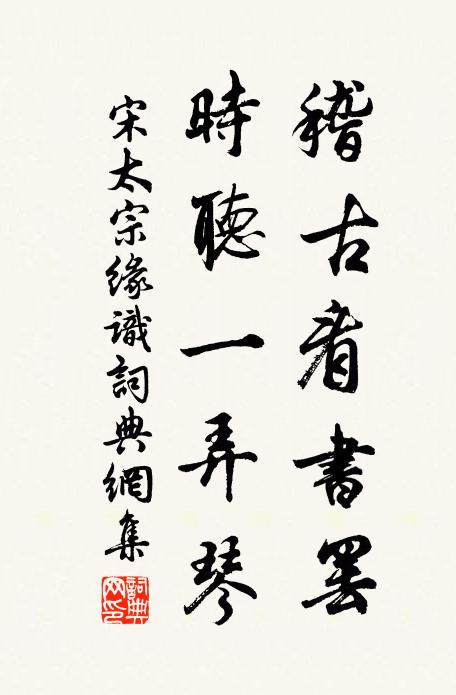 稽古看書罢
時聽一弄琴
宋太宗緣識詞典網集
詞典網印